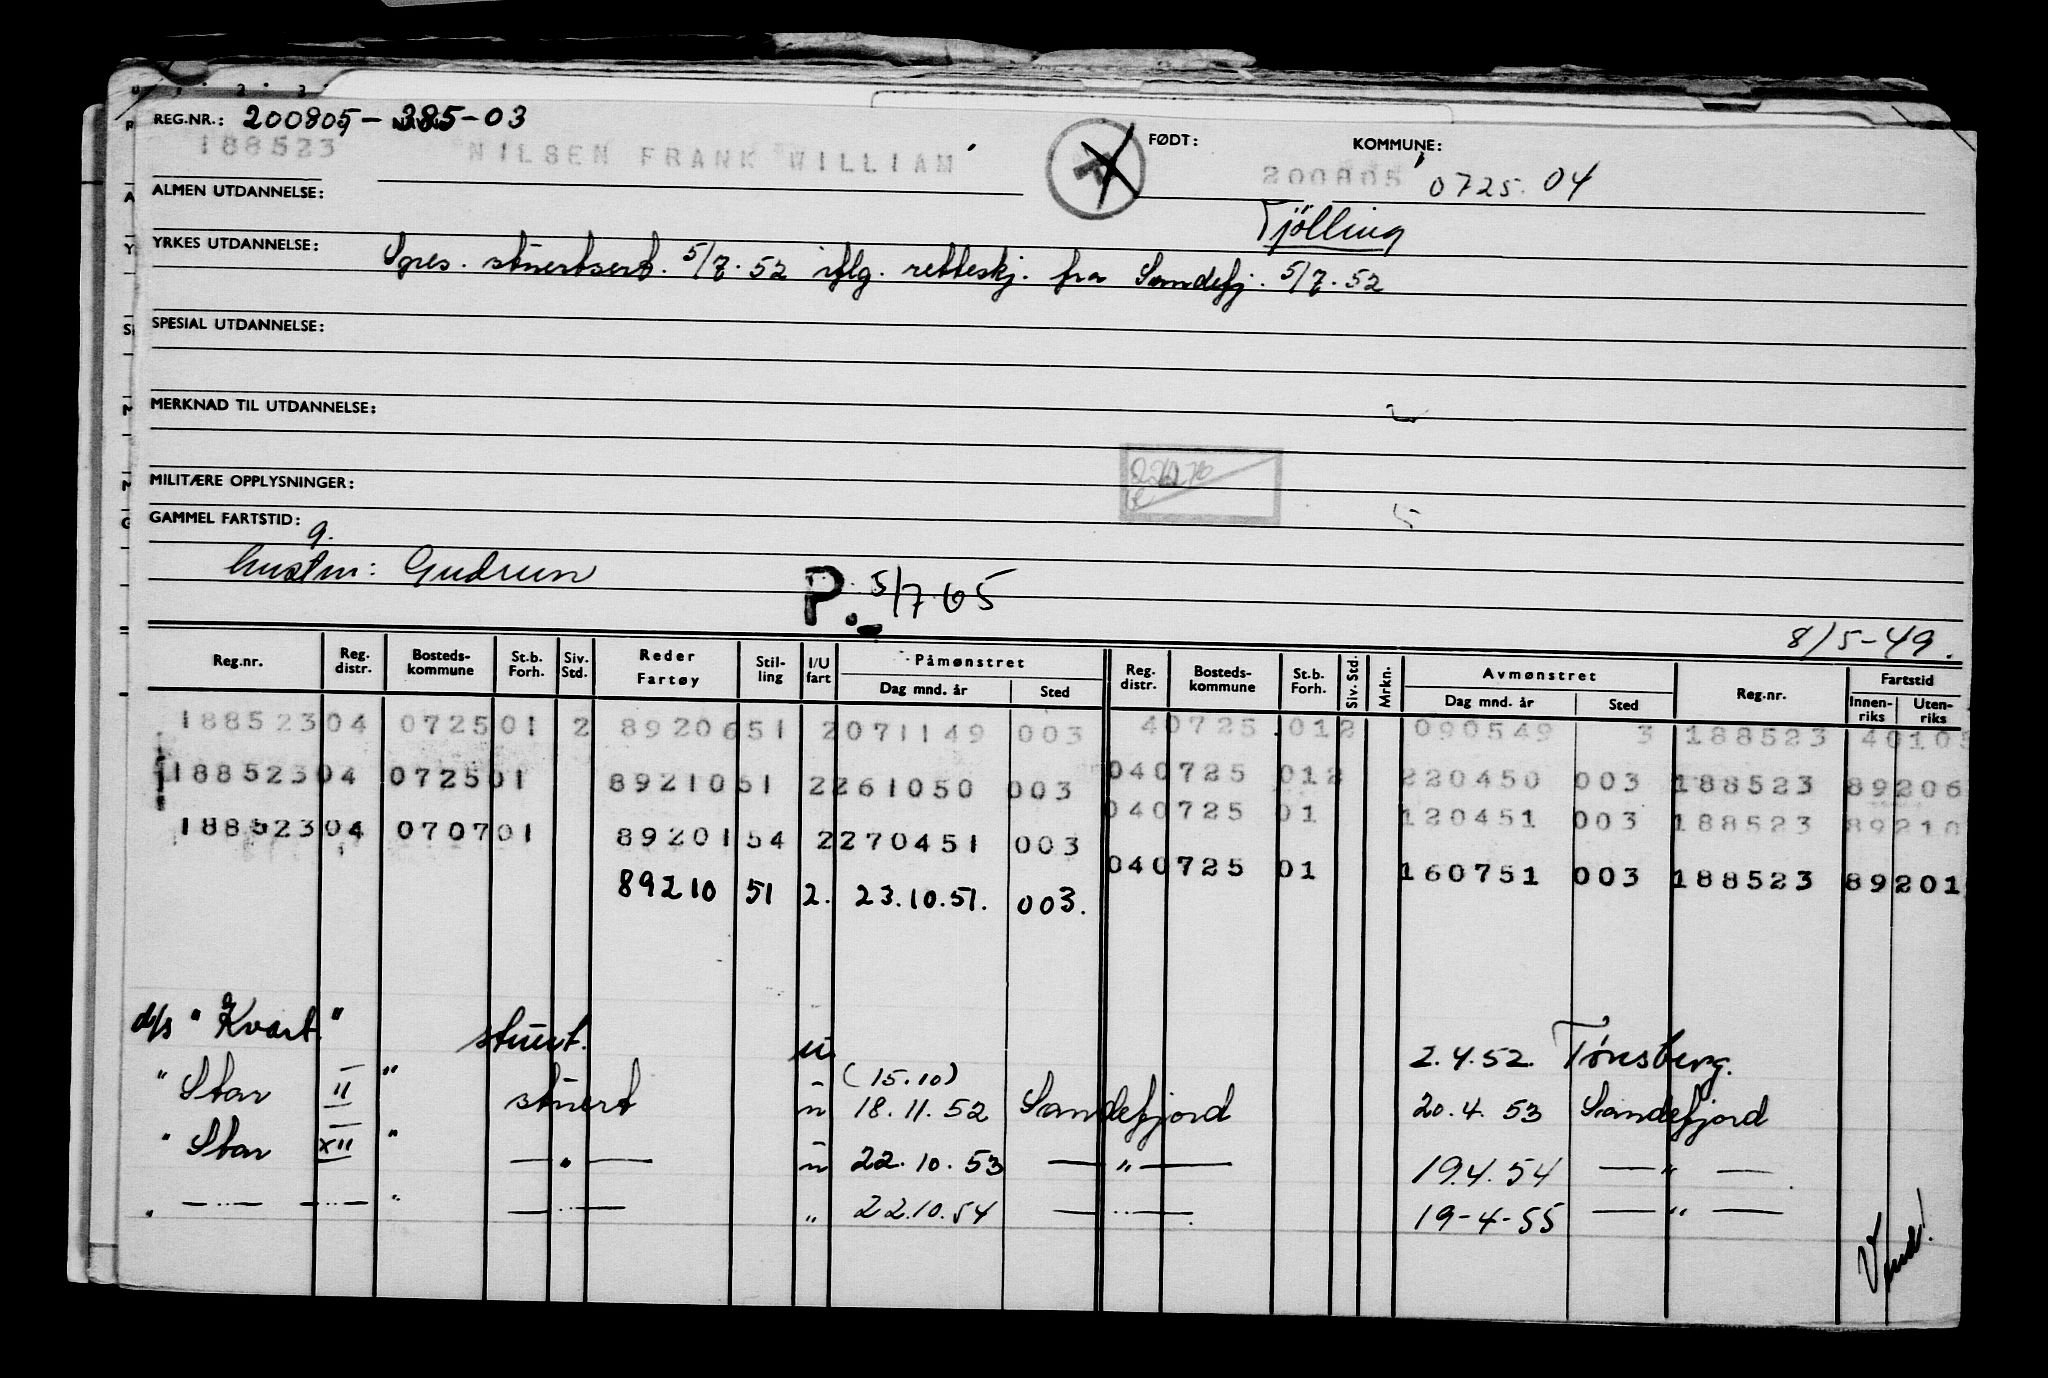 REG.NR.: 200805-385-03 FØDT: KOMMUNE:
188523 NILSEN FRANK WILLIAM 200805 0725.04
ALMEN UTDANNELSE: Tjølling
YRKES UTDANNELSE: Spes. stuertsert. 5/7.52 iflg. retteskj. fra Sandefj. 5/7.52
SPESIAL UTDANNELSE:
MERKNAD TIL UTDANNELSE:
MILITÆRE OPPLYSNINGER:
GAMMEL FARTSTID:
g.
hustru: Gudrun
P. 5/7.65
8/5-49.
Reg.nr. Reg. distr. Bosteds-kommune St.b. Forh. Siv. Std. Reder Fartøy Stil-ling I/U fart Påmønstret Dag mnd. år Sted Reg. distr. Bosteds-kommune St.b. Forh. Siv. Std. Mrkn. Avmønstret Dag mnd. år Sted Reg.nr. Fartstid Innen-riks Uten-riks
188523 04 0725 01 2 89206 51 2 071149 003 40725 012 090549 3 188523 40105
188523 04 0725 01 89210 51 2 261050 003 040725 012 220450 003 188523 89206
040725 01 120451 003 188523 89210
188523 04 0707 01 89201 54 2 270451 003 040725 01 160751 003 188523 89201
89210 51 2. 23.10.51. 003.
d/s "Kvart." stuert. u. 2.4.52. Tønsberg.
" Star II " stuert u (15.10) 18.11.52 Sandefjord 20.4.53 Sandefjord
" Star XII " — " — u 22.10.53 — " — 19.4.54 — " —
" — " — — " — " — " — " 22.10.54 — " — 19-4-55 — " —
Vend!